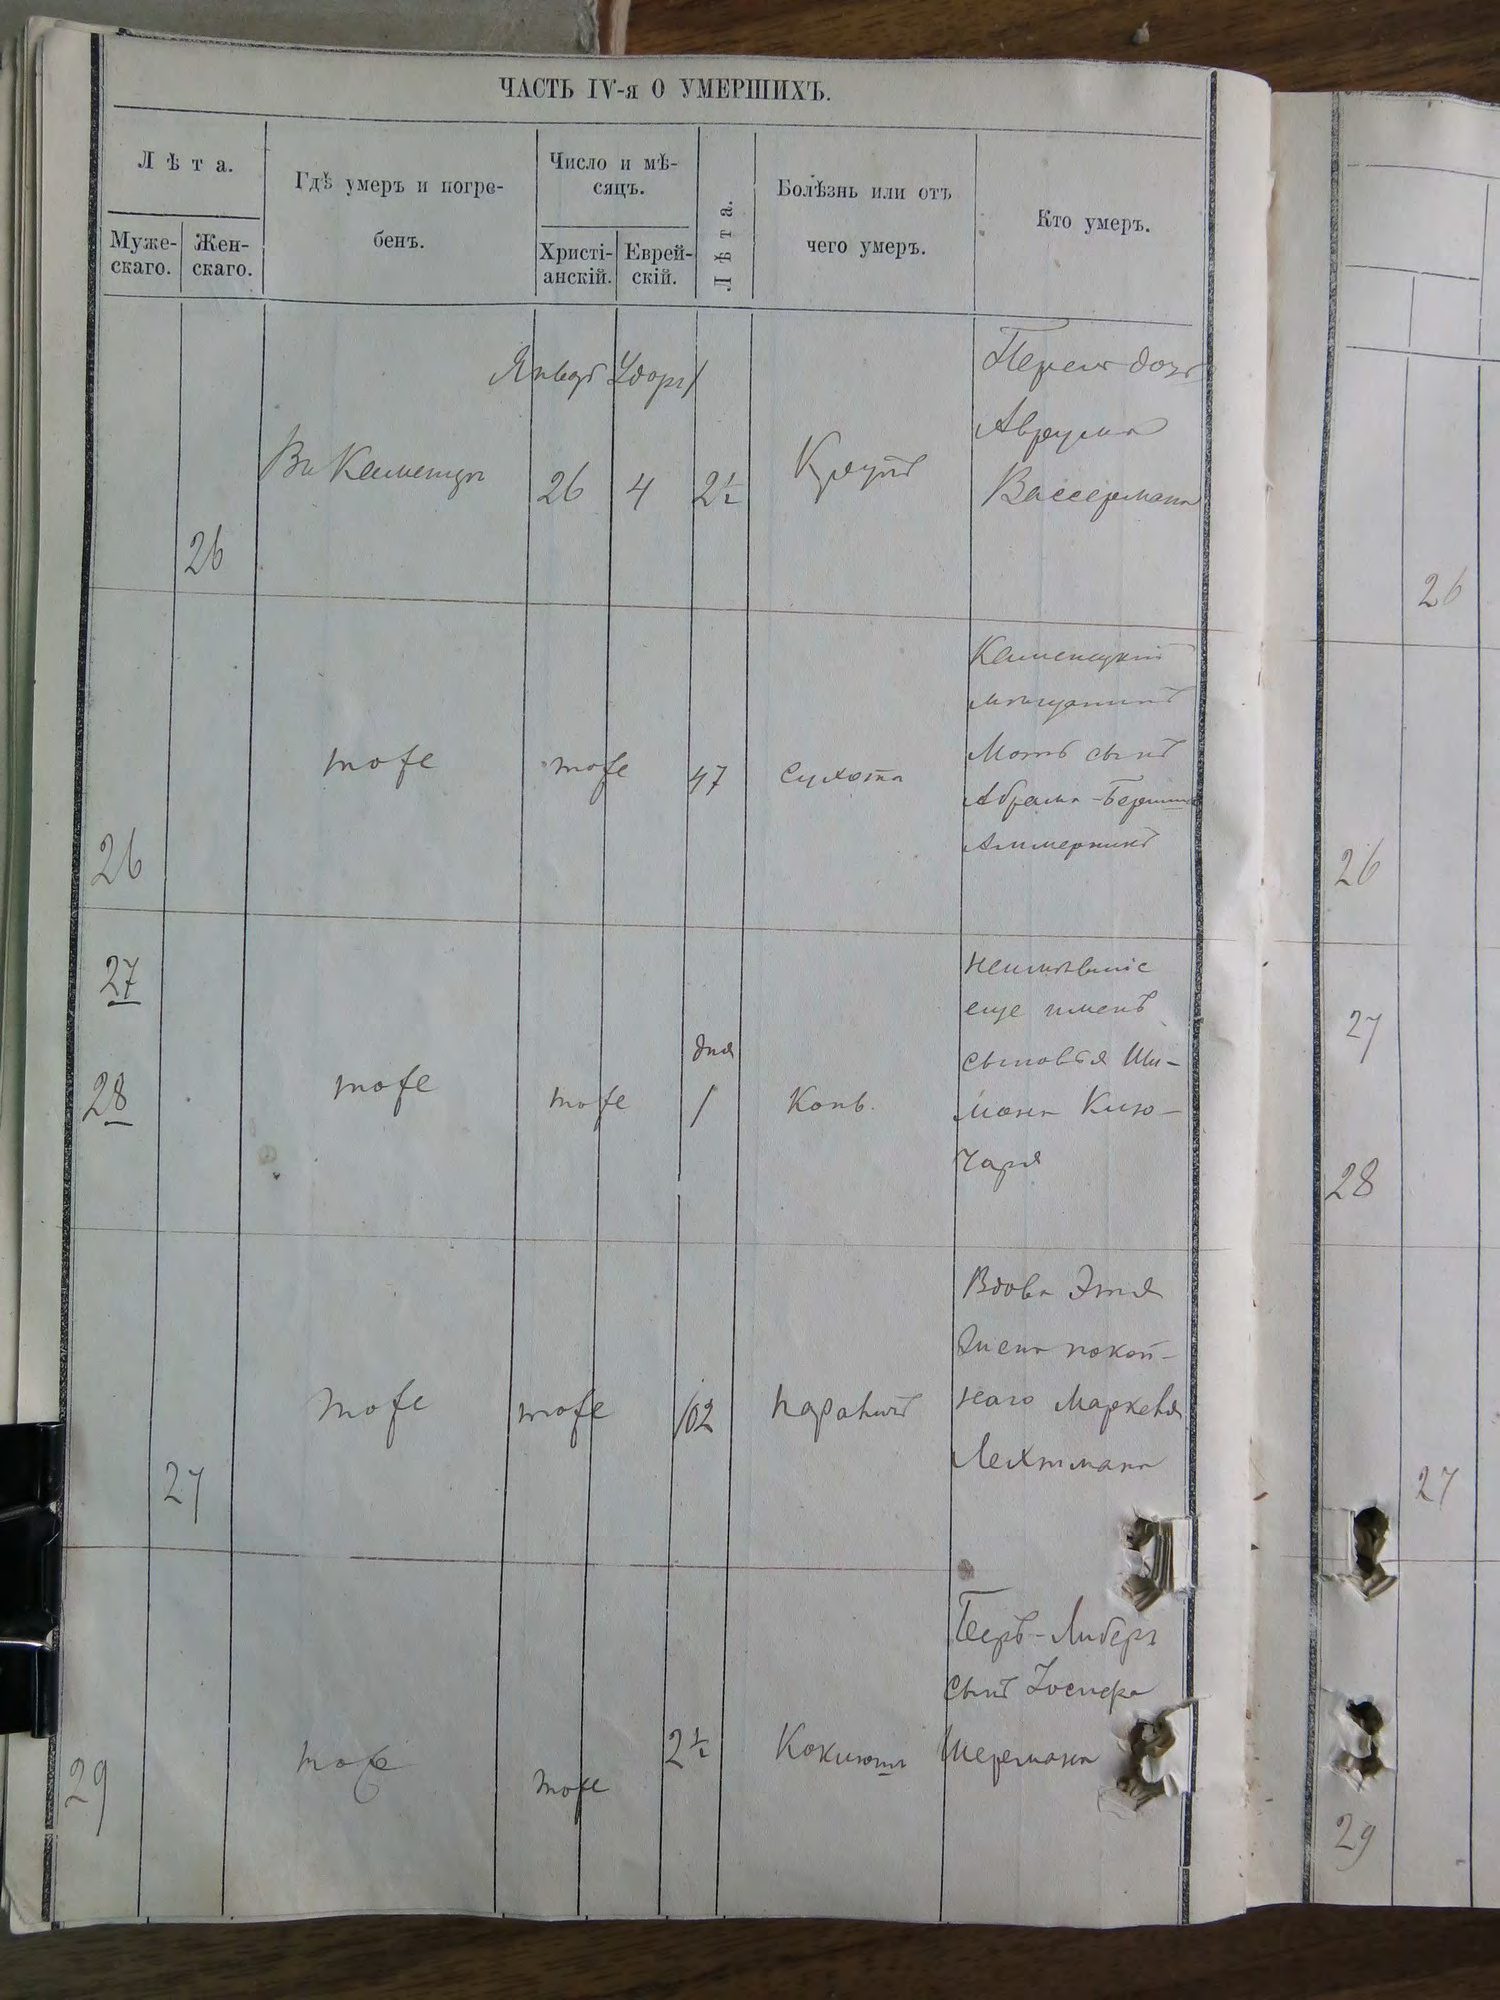 ЧАСТЬ IV-я О УМЕРШИХЪ.
Лѣта.
Муже-
скаго.
Жен-
скаго.
Гдѣ умеръ и погре-
бенъ.
Число и мѣ-
сяцъ.
Христі-
анскій.
Еврей-
скій.
Лѣта.
Болѣзнь или отъ
чего умеръ.
Кто умеръ.
26
Въ Каменцѣ
Январь
26
4
2½
Крупъ
Перля дочь
Аврума
Вассермана
26
26
тоже
тоже
47
сухота
Каменецкій
мѣщанинъ
Мотъ сынъ
Абрама-Берка
26
27
28
тоже
тоже
дня
1
Конв.
неимѣвшіе
еще именъ
сыновья Ши-
мона Клю-
чаря
27
28
27
тоже
тоже
102
параличъ
Вдова Этя
жена покой-
наго Маркевя
Лехтмана
27
29
тоже
тоже
2½
Коклюшъ
Беръ-Либеръ
сынъ Іосифа
Шермана
29